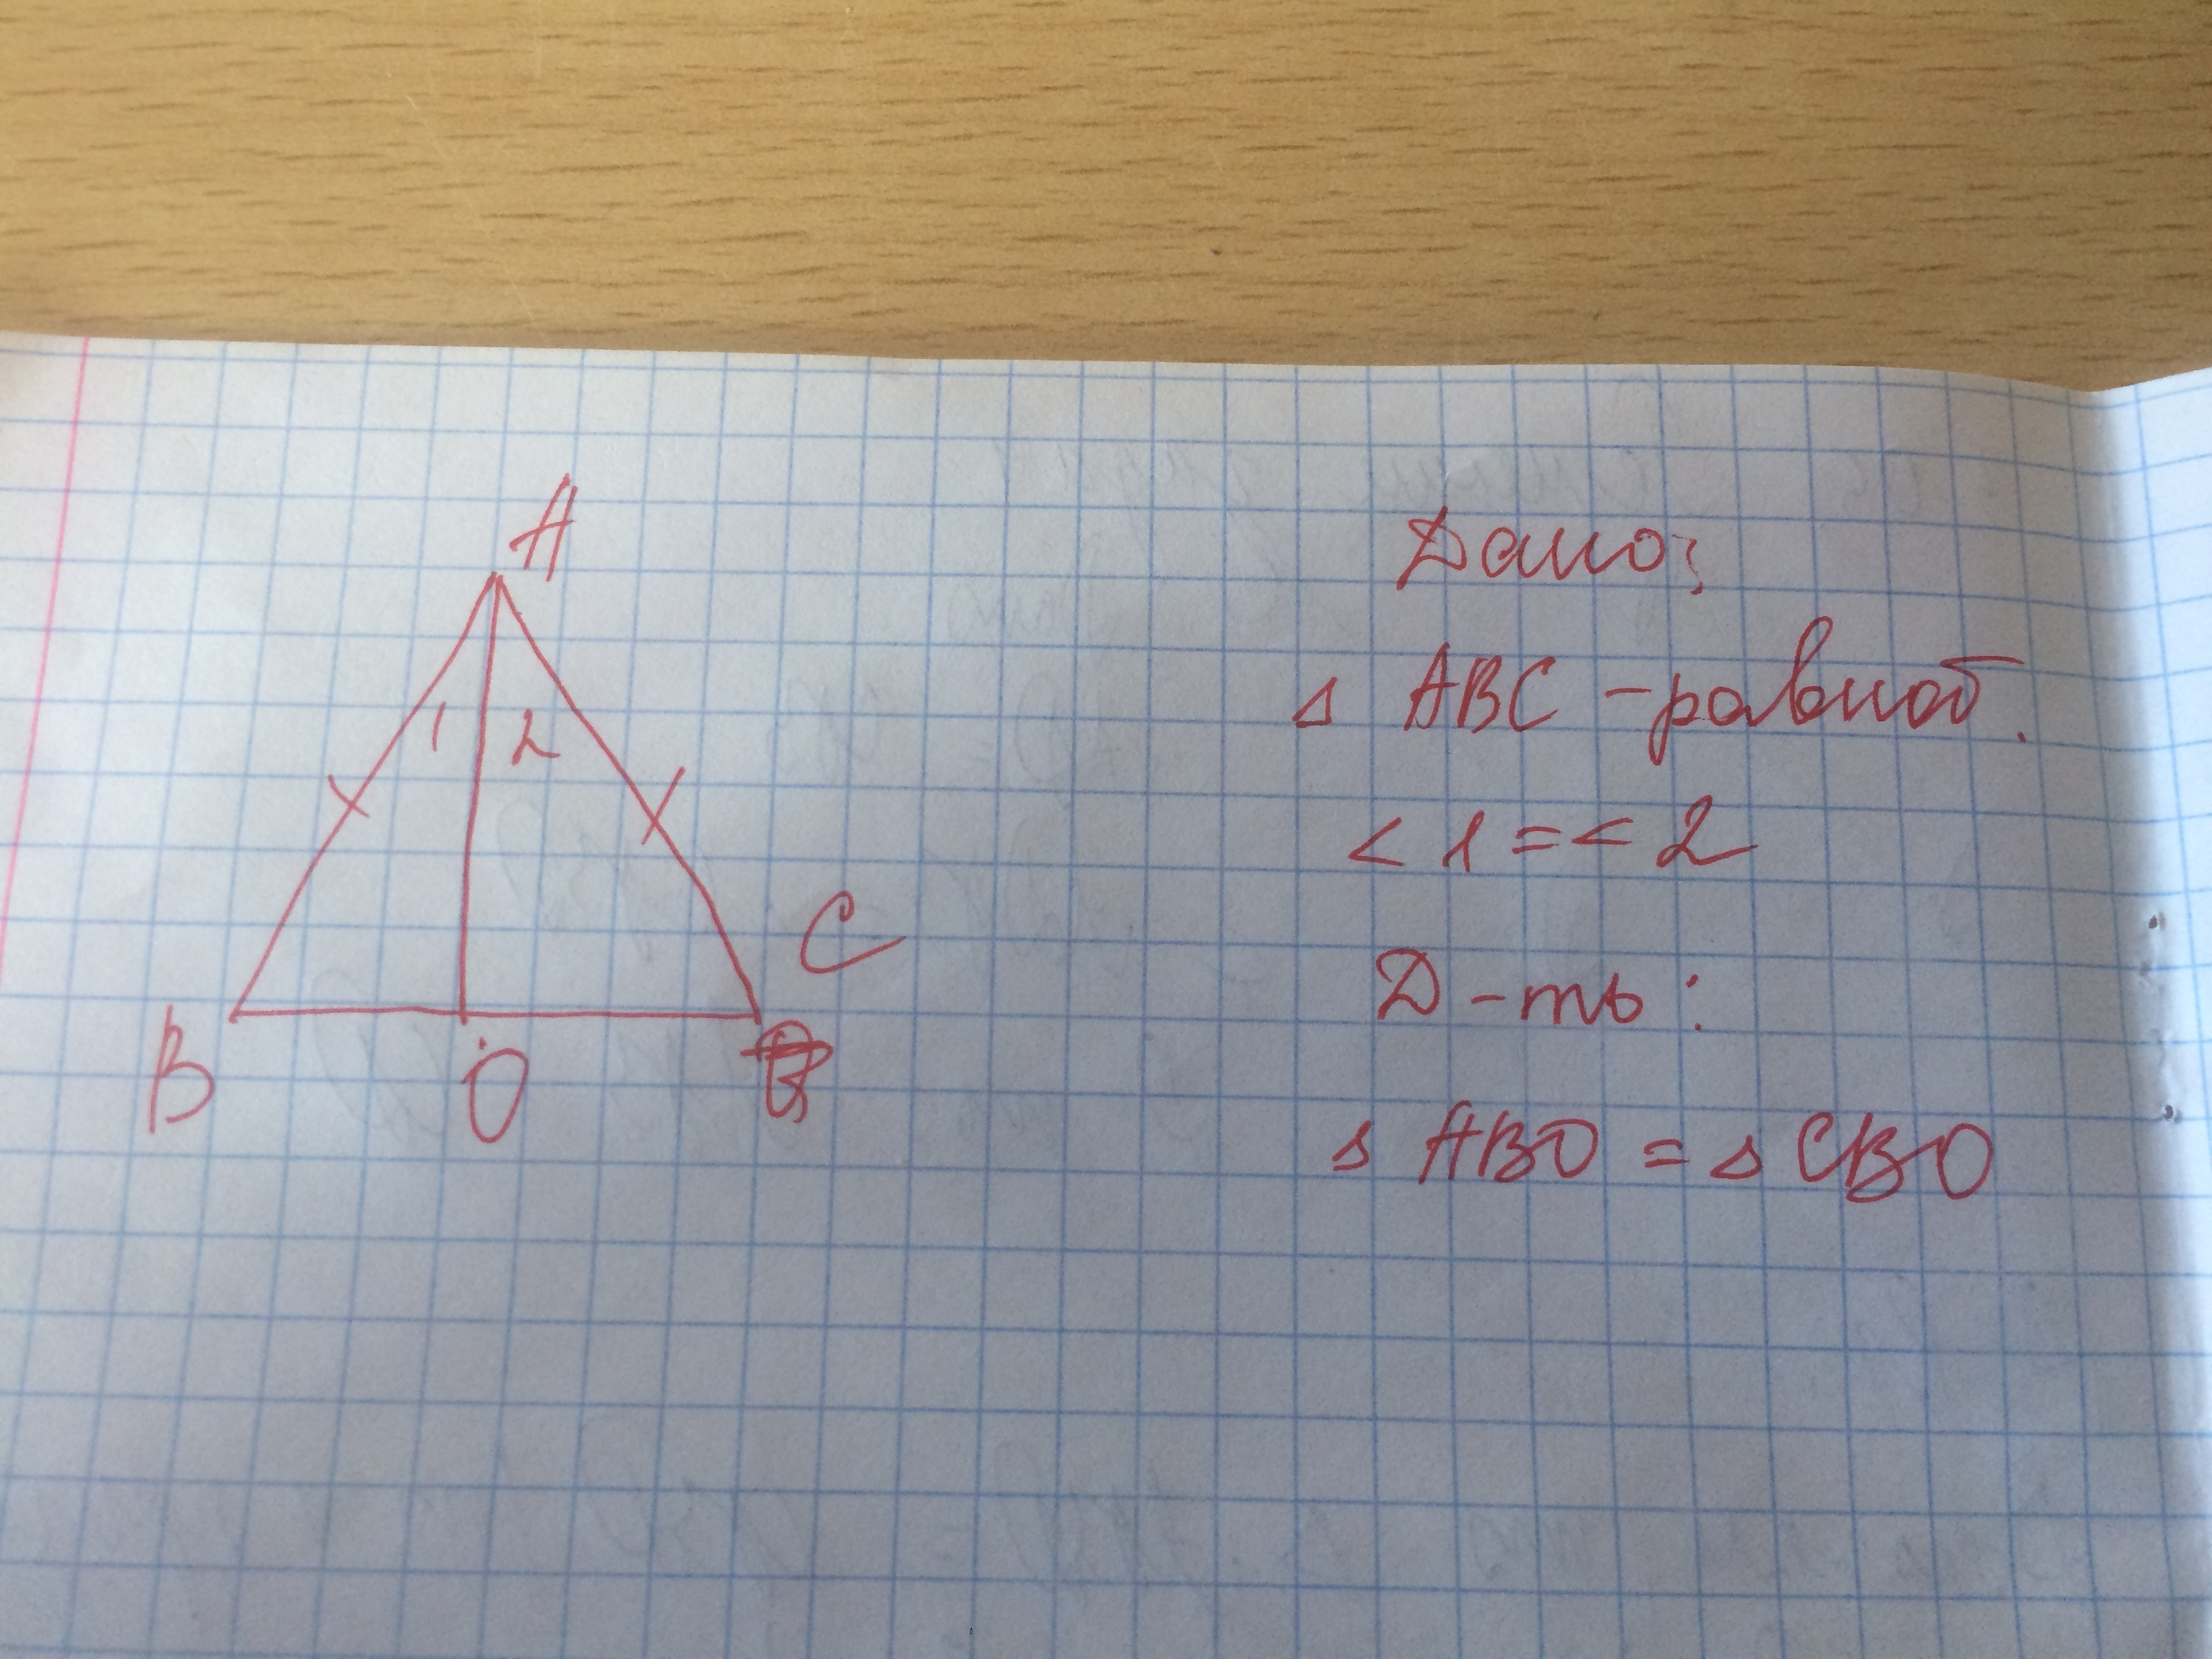 A
1 2
C
B
O
Дано:
Δ ABC - равноб.
< 1 = < 2
Д-ть:
Δ ABO = Δ CBO